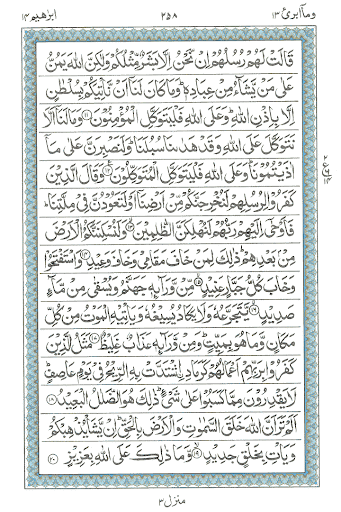 وما أبرئ ١٣
٢٥٨
ابرٰهيم ١٤
قَالَتْ لَهُمْ رُسُلُهُمْ اِنْ نَّحْنُ اِلَّا بَشَرٌ مِّثْلُكُمْ وَلٰكِنَّ اللّٰهَ يَمُنُّ
عَلٰى مَنْ يَّشَآءُ مِنْ عِبَادِهٖ ؕ وَمَا كَانَ لَنَاۤ اَنْ نَّاْتِيَكُمْ بِسُلْطٰنٍ
اِلَّا بِاِذْنِ اللّٰهِ ؕ وَعَلَى اللّٰهِ فَلْيَتَوَكَّلِ الْمُؤْمِنُوْنَ ۝۱۱ وَمَا لَنَاۤ اَلَّا
نَتَوَكَّلَ عَلَى اللّٰهِ وَقَدْ هَدٰىنَا سُبُلَنَا ؕ وَلَنَصْبِرَنَّ عَلٰى مَاۤ
اٰذَيْتُمُوْنَا ؕ وَعَلَى اللّٰهِ فَلْيَتَوَكَّلِ الْمُتَوَكِّلُوْنَ ۝۱۲ وَقَالَ الَّذِيْنَ
كَفَرُوْا لِرُسُلِهِمْ لَنُخْرِجَنَّكُمْ مِّنْ اَرْضِنَاۤ اَوْ لَتَعُوْدُنَّ فِيْ مِلَّتِنَا ؕ
فَاَوْحٰۤى اِلَيْهِمْ رَبُّهُمْ لَنُهْلِكَنَّ الظّٰلِمِيْنَ ۝۱۳ وَلَنُسْكِنَنَّكُمُ الْاَرْضَ
مِنْۢ بَعْدِهِمْ ؕ ذٰلِكَ لِمَنْ خَافَ مَقَامِيْ وَخَافَ وَعِيْدِ ۝۱۴ وَاسْتَفْتَحُوْا
وَخَابَ كُلُّ جَبَّارٍ عَنِيْدٍ ۝۱۵ مِّنْ وَّرَآئِهٖ جَهَنَّمُ وَيُسْقٰى مِنْ مَّآءٍ
صَدِيْدٍ ۝۱۶ يَّتَجَرَّعُهٗ وَلَا يَكَادُ يُسِيْغُهٗ وَيَاْتِيْهِ الْمَوْتُ مِنْ كُلِّ
مَكَانٍ وَّمَا هُوَ بِمَيِّتٍ ؕ وَمِنْ وَّرَآئِهٖ عَذَابٌ غَلِيْظٌ ۝۱۷ مَثَلُ الَّذِيْنَ
كَفَرُوْا بِرَبِّهِمْ اَعْمَالُهُمْ كَرَمَادِ ِۨاشْتَدَّتْ بِهِ الرِّيْحُ فِيْ يَوْمٍ عَاصِفٍ ؕ
لَا يَقْدِرُوْنَ مِمَّا كَسَبُوْا عَلٰى شَيْءٍ ؕ ذٰلِكَ هُوَ الضَّلٰلُ الْبَعِيْدُ ۝۱۸
اَلَمْ تَرَ اَنَّ اللّٰهَ خَلَقَ السَّمٰوٰتِ وَالْاَرْضَ بِالْحَقِّ ؕ اِنْ يَّشَاْ يُذْهِبْكُمْ
وَيَاْتِ بِخَلْقٍ جَدِيْدٍ ۝۱۹ وَّمَا ذٰلِكَ عَلَى اللّٰهِ بِعَزِيْزٍ ۝۲۰
منزل ٣